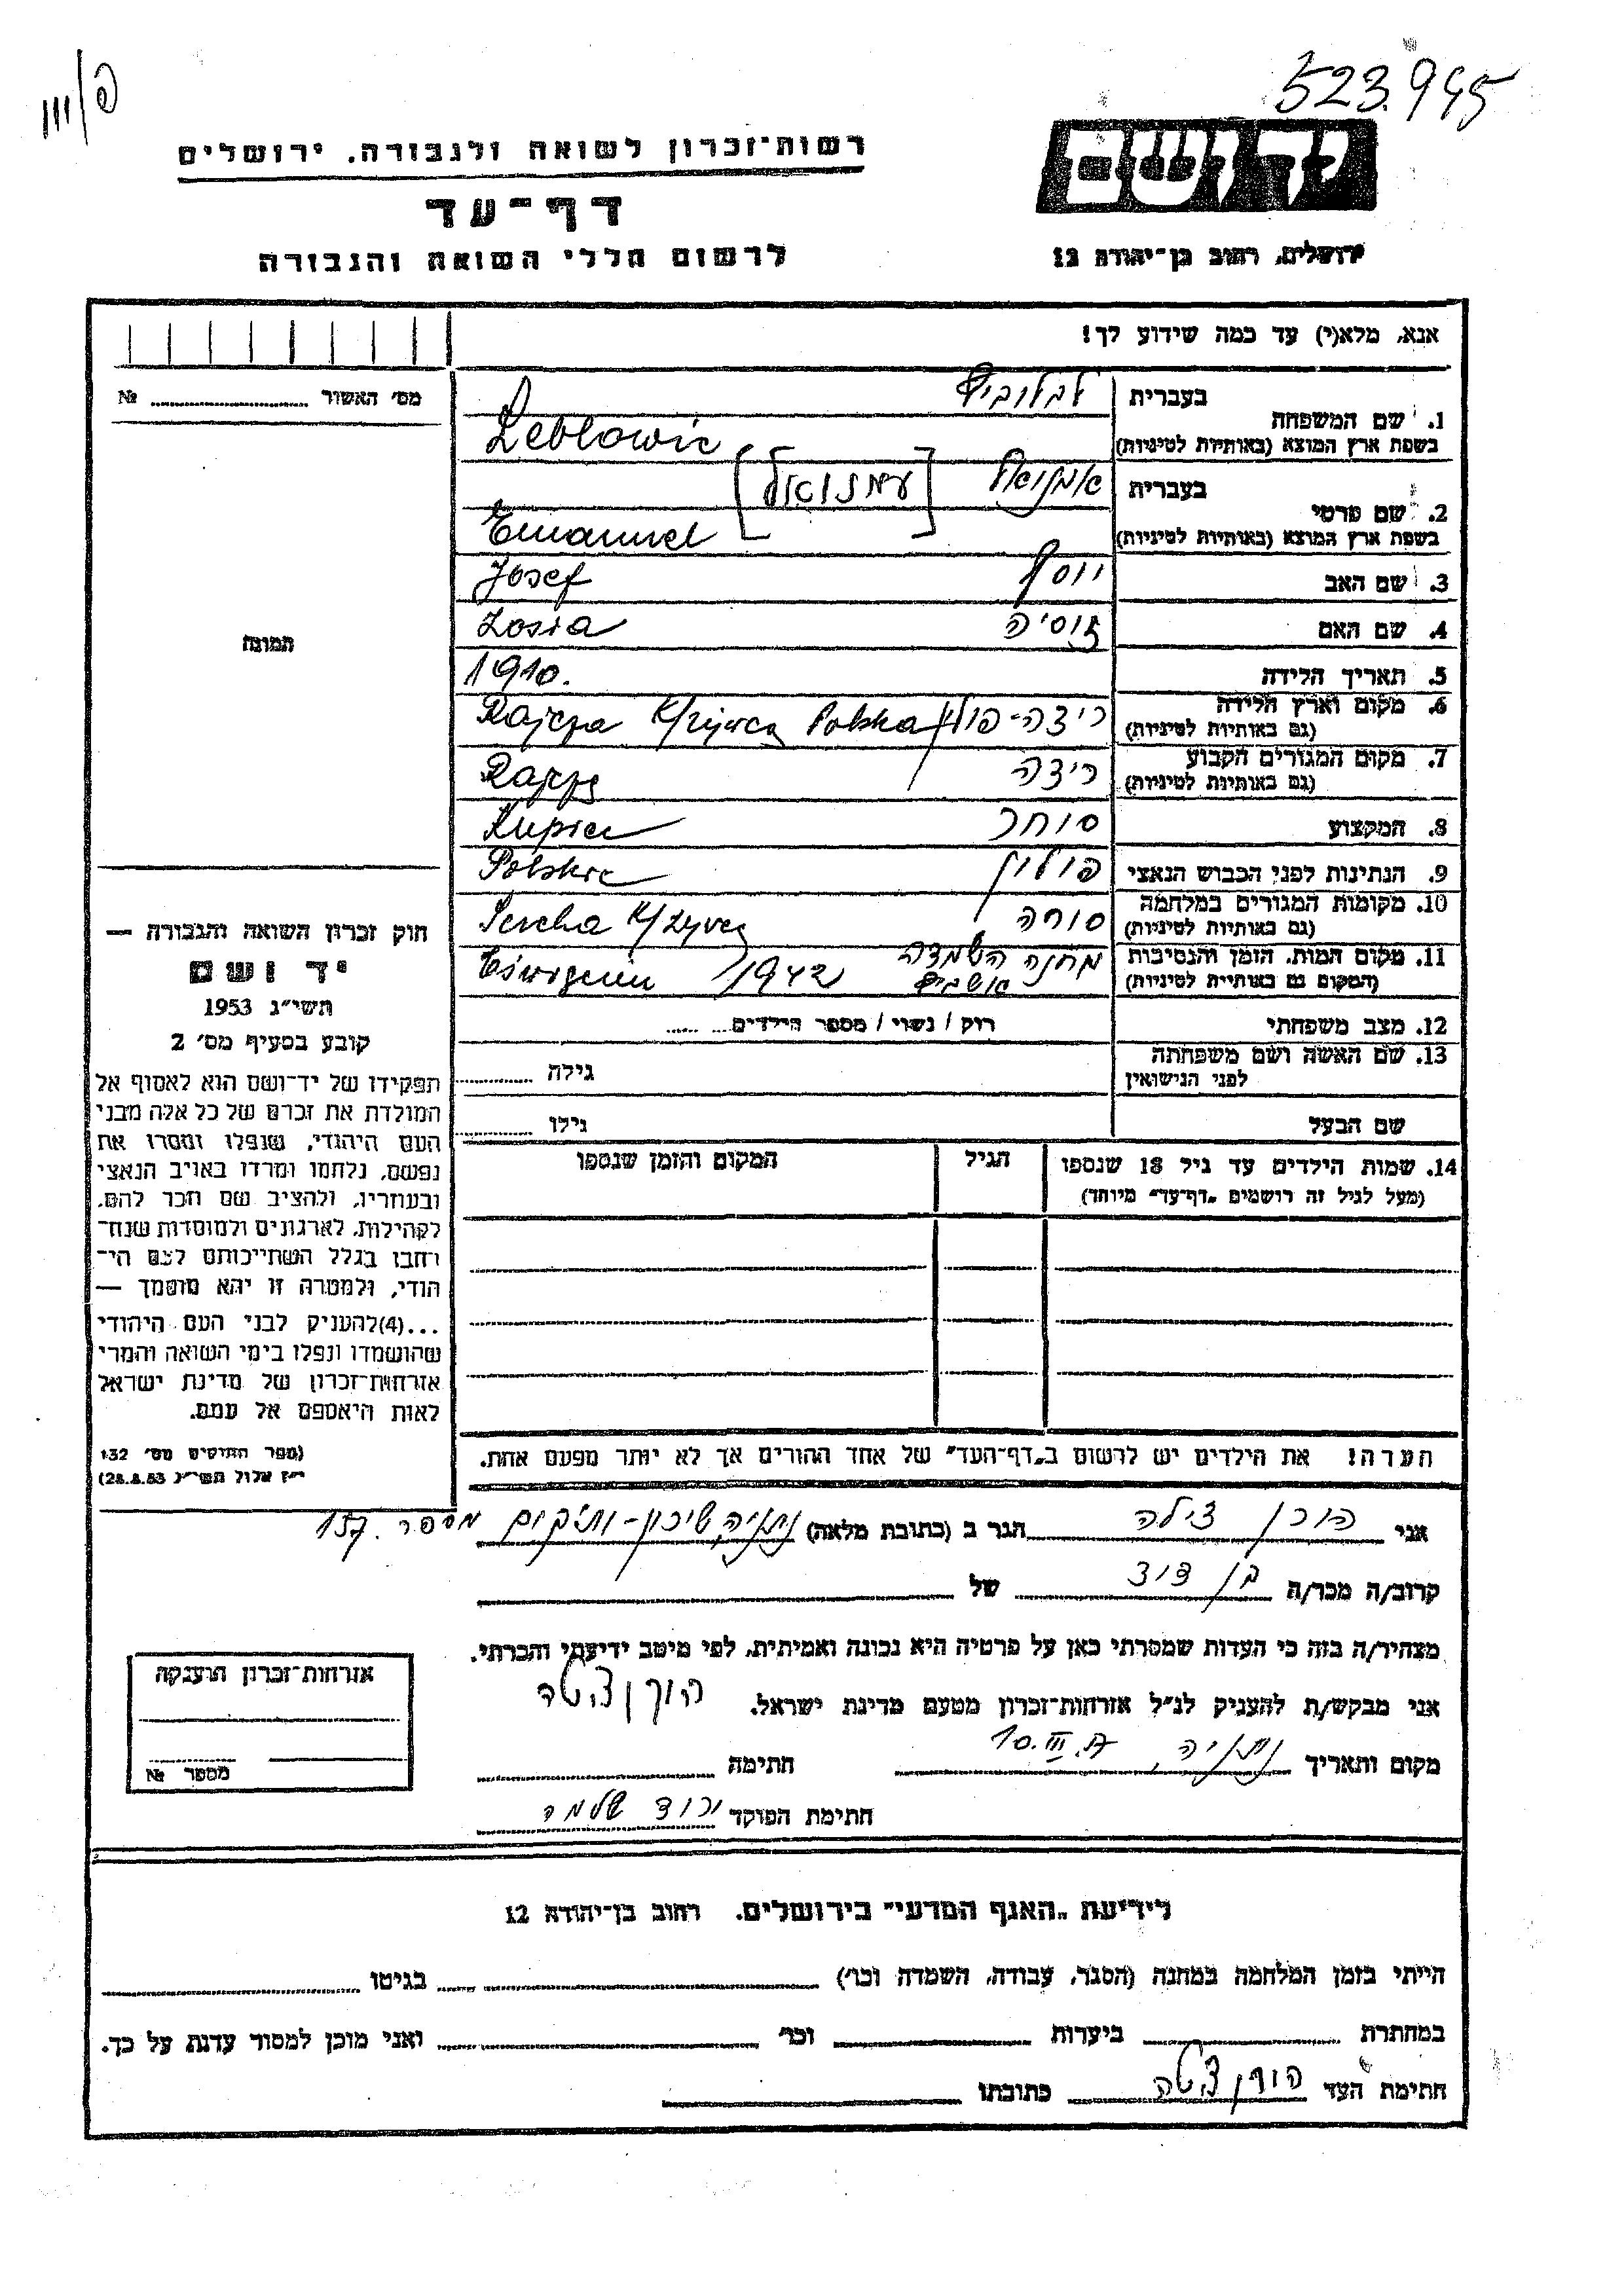 523.945
פ/III
ידושם
רשות־זכרון לשואה ולגבורה. ירושלים
דף־עד
ירושלים, רחוב בן־יהודה 12
לרשום חללי השואה והגבורה
אנא, מלא(י) עד כמה שידוע לך!
מס׳ האשור № 
1. שם המשפחה
בעברית לבלוביץ
בשפת ארץ המוצא (באותיות לטיניות) Leblowic
2. שם פרטי
בעברית אמנואל [עמנואל]
בשפת ארץ המוצא (באותיות לטיניות) Emanuel
3. שם האב יוסף Josef
4. שם האם זוסיה Zosia
5. תאריך הלידה 1910.
6. מקום וארץ הלידה
(גם באותיות לטיניות) ריצה-פולין Rajcza K/Żywca Polska
7. מקום המגורים הקבוע
(גם באותיות לטיניות) ריצה Rajcza
8. המקצוע סוחר Kupiec
9. הנתינות לפני הכבוש הנאצי פולין Polskie
10. מקומות המגורים במלחמה
(גם באותיות לטיניות) סוחה K/Żywca
11. מקום המות, הזמן והנסיבות
(המקום גם באותיות לטיניות) מחנה השמדה 1942
12. מצב משפחתי רוק / נשוי / מספר הילדים
13. שם האשה ושם משפחתה
לפני הנישואין גילה
שם הבעל גילו
14. שמות הילדים עד גיל 18 שנספו הגיל המקום והזמן שנספו
(מעל לגיל זה רושמים „דף־עד״ מיוחד)
הערה! את הילדים יש לרשום ב„דף־העד״ של אחד ההורים אך לא יותר מפעם אחת.
תמונה
חוק זכרון השואה והגבורה —
יד ושם
תשי״ג 1953
קובע בסעיף מס׳ 2
תפקידו של יד־ושם הוא לאסוף אל
המולדת את זכרם של כל אלה מבני
העם היהודי, שנפלו ומסרו את
נפשם, נלחמו ומרדו באויב הנאצי
ובעוזריו, ולהציב שם וזכר להם,
לקהילות, לארגונים ולמוסדות שנח־
רבו בגלל השתייכותם לעם הי־
הודי, ולמטרה זו יהא מוסמך —
...(4)להעניק לבני העם היהודי
שהושמדו ונפלו בימי השואה והמרי
אזרחות־זכרון של מדינת ישראל
לאות היאספם אל עמם.
(ספר החוקים מס׳ 132
י״ז אלול תשי״ג 28.8.53)
אני הורן צילה הגר ב (כתובת מלאה) נתניה שיכון-ותיקים מספר 137.
קרוב/ה מכר/ה בן דוד של
מצהיר/ה בזה כי העדות שמסרתי כאן על פרטיה היא נכונה ואמיתית, לפי מיטב ידיעתי והכרתי.
אני מבקש/ת להעניק לנ״ל אזרחות־זכרון מטעם מדינת ישראל. הורן צילה
מקום ותאריך נתניה, 10.III חתימה
חתימת הפוקד
אזרחות־זכרון הוענקה
מספר №
לידיעת „האגף המדעי״ בירושלים. רחוב בן־יהודה 12
הייתי בזמן המלחמה במחנה (הסגר, עבודה, השמדה וכו׳) בגיטו
במחתרת ביערות וכו׳ ואני מוכן למסור עדות על כך.
חתימת העד הורן צילה כתובתו